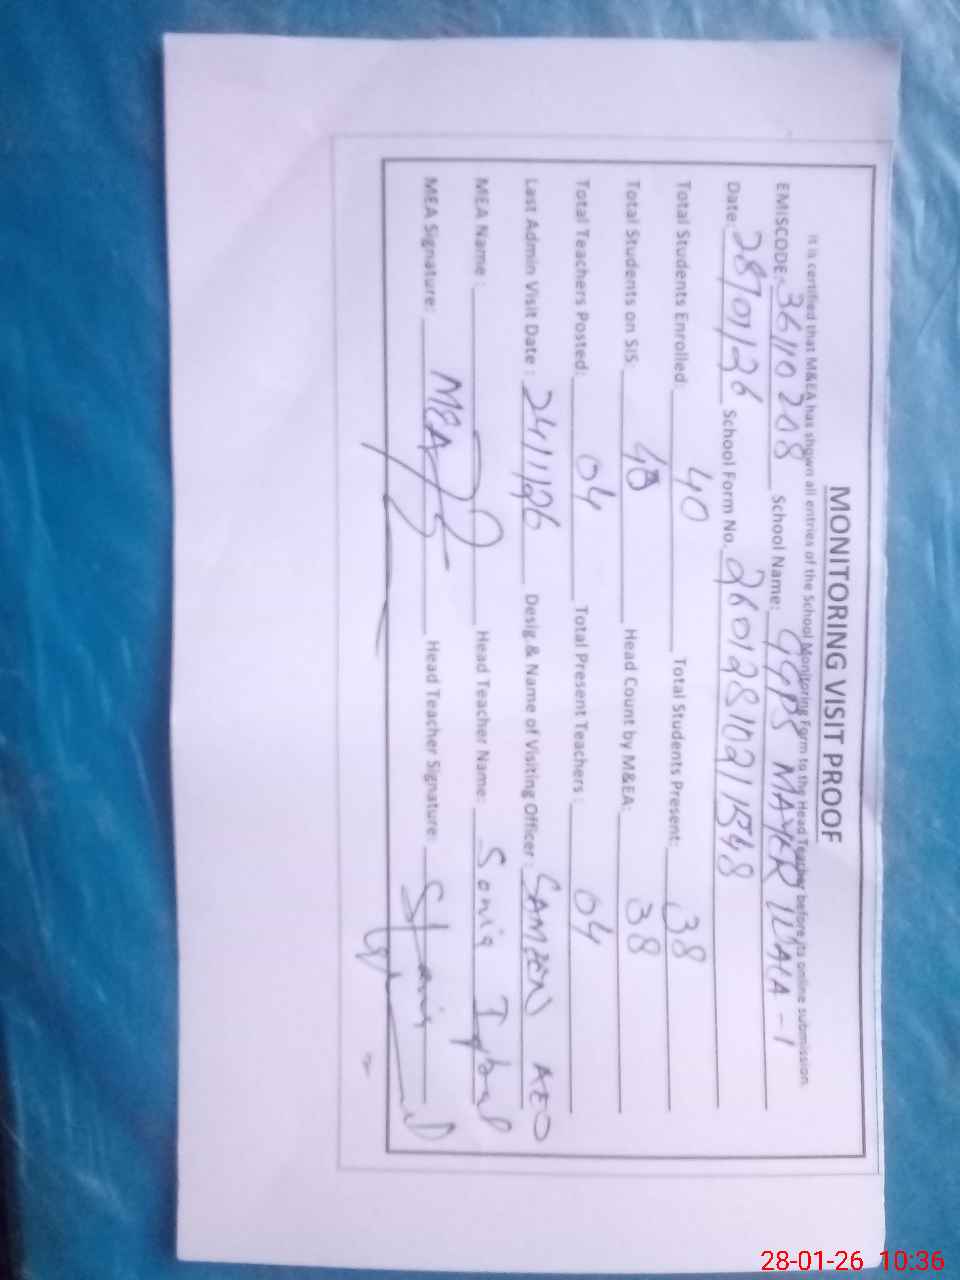 MONITORING VISIT PROOF
It is certified that M&EA has shown all entries of the School Monitoring Form to the Head Teacher before its online submission.
EMISCODE: 36110208 School Name: GGPS MAYER WALA-1
Date: 28/01/26 School Form No. 26012810211548
Total Students Enrolled: 40 Total Students Present: 38
Total Students on SIS: 40 Head Count by M&EA: 38
Total Teachers Posted: 04 Total Present Teachers: 04
Last Admin Visit Date: 24/1/26 Desig.& Name of Visiting Officer: AEO
MEA Name: Head Teacher Name: Sonia Iqbal
MEA Signature: MEA Head Teacher Signature:
28-01-26 10:36